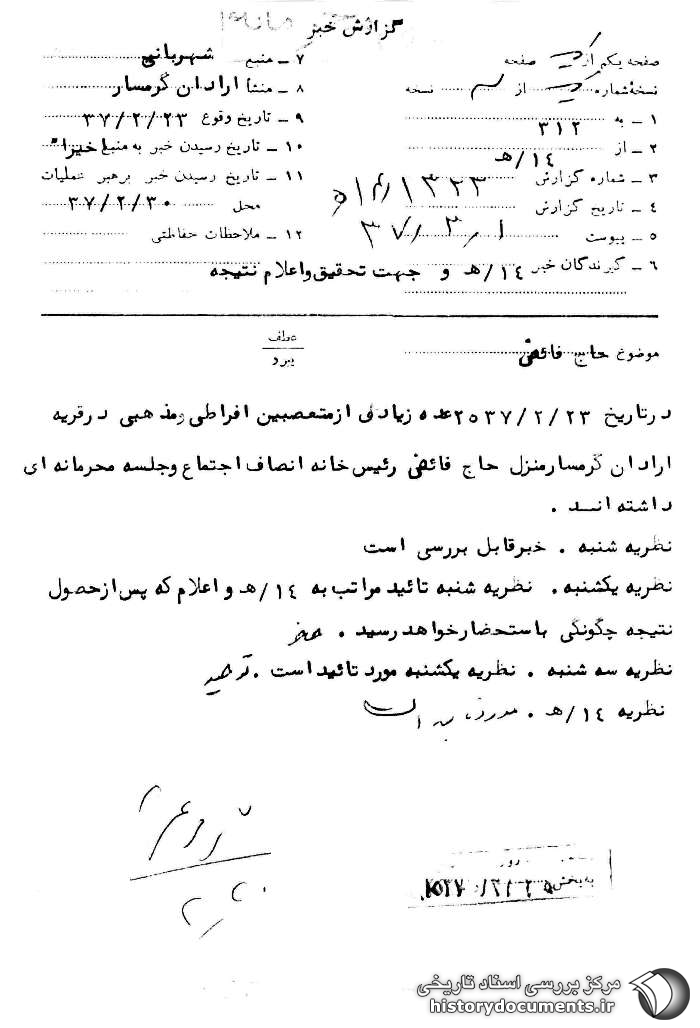 گزارش خبر
صفحه یکم از یک صفحه
نسخهٔ شماره یک از سه نسخه
۱ ـ به ۳۱۲
۲ ـ از ۱۴/هـ
۳ ـ شماره گزارش ۱۳۲۳
۴ ـ تاریخ گزارش ۳۷/۳/۱
۵ ـ پیوست
۶ ـ گیرندگان خبر ۱۴/هـ و جهت تحقیق و اعلام نتیجه
۷ ـ منبع شهربانی
۸ ـ منشأ ارادان گرمسار
۹ ـ تاریخ وقوع ۳۷/۲/۲۳
۱۰ ـ تاریخ رسیدن خبر به منبع اخیراً
۱۱ ـ تاریخ رسیدن خبر برهبر عملیات
محل ۳۷/۲/۳۰
۱۲ ـ ملاحظات حفاظتی
موضوع حاج فائض
عطف
پیرو
در تاریخ ۲۵۳۷/۲/۲۳ عده زیادی از متعصبین افراطی و مذهبی در قریه
ارادان گرمسار منزل حاج فائض رئیس خانه انصاف اجتماع و جلسه محرمانه ای
داشته انـد .
نظریه شنبه . خبر قابل بررسی است
نظریه یکشنبه . نظریه شنبه تائید مراتب به ۱۴/هـ و اعلام که پس از حصول
نتیجه چگونگی باستحضار خواهد رسید .
نظریه سه شنبه . نظریه یکشنبه مورد تائید است .
نظریه ۱۴/هـ .
به بخش
مرکز بررسی اسناد تاریخی
historydocuments.ir